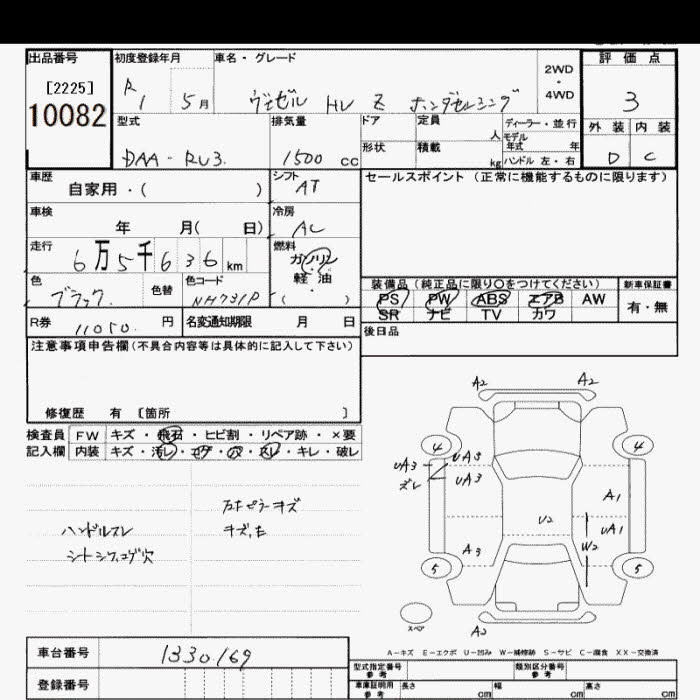 出品番号
[2225]
10082
初度登録年月
R1 5月
車名・グレード
ヴェゼル HV Z ホンダセンシング
2WD
・
4WD
評価点
3
型式
DAA-RU3
排気量
1500 cc
ドア
形状
定員 人
積載 kg
ディーラー・並行
モデル
年式 年
ハンドル 左・右
外装 内装
D C
車歴
自家用・( )
シフト
AT
セールスポイント (正常に機能するものに限ります)
車検
年 月( 日)
冷房
AC
走行
6万5千636km
燃料
ガソリン
軽・油
( ・ )
色
ブラック
色替
色コード
NH731P
装備品 (純正品に限り○をつけてください)
新車保証書
PS PW ABS エアB AW
SR ナビ TV カワ
有・無
R券 11050 円
名変通知期限 月 日
後日品
注意事項申告欄(不具合内容等は具体的に記入して下さい)
修復歴 有 〔箇所 〕
検査員
記入欄
FW キズ・飛石・ヒビ割・リペア跡・×要
内装 キズ・汚レ・コゲ・穴・スレ・キレ・破レ
ハンドルスレ
キズ
A2 A2
4 4
UA3 UA3
ズレ UA3
A1
U2 UA1
A3 W2
5 5
スペア
A2
A-キズ E-エクボ U-凹み W-補修跡 S-サビ C-腐食 XX-交換済
車台番号
1330169
登録番号
型式指定番号
参考
類別区分番号
参考
車庫証明用
参考
長さ cm 幅 cm 高さ cm